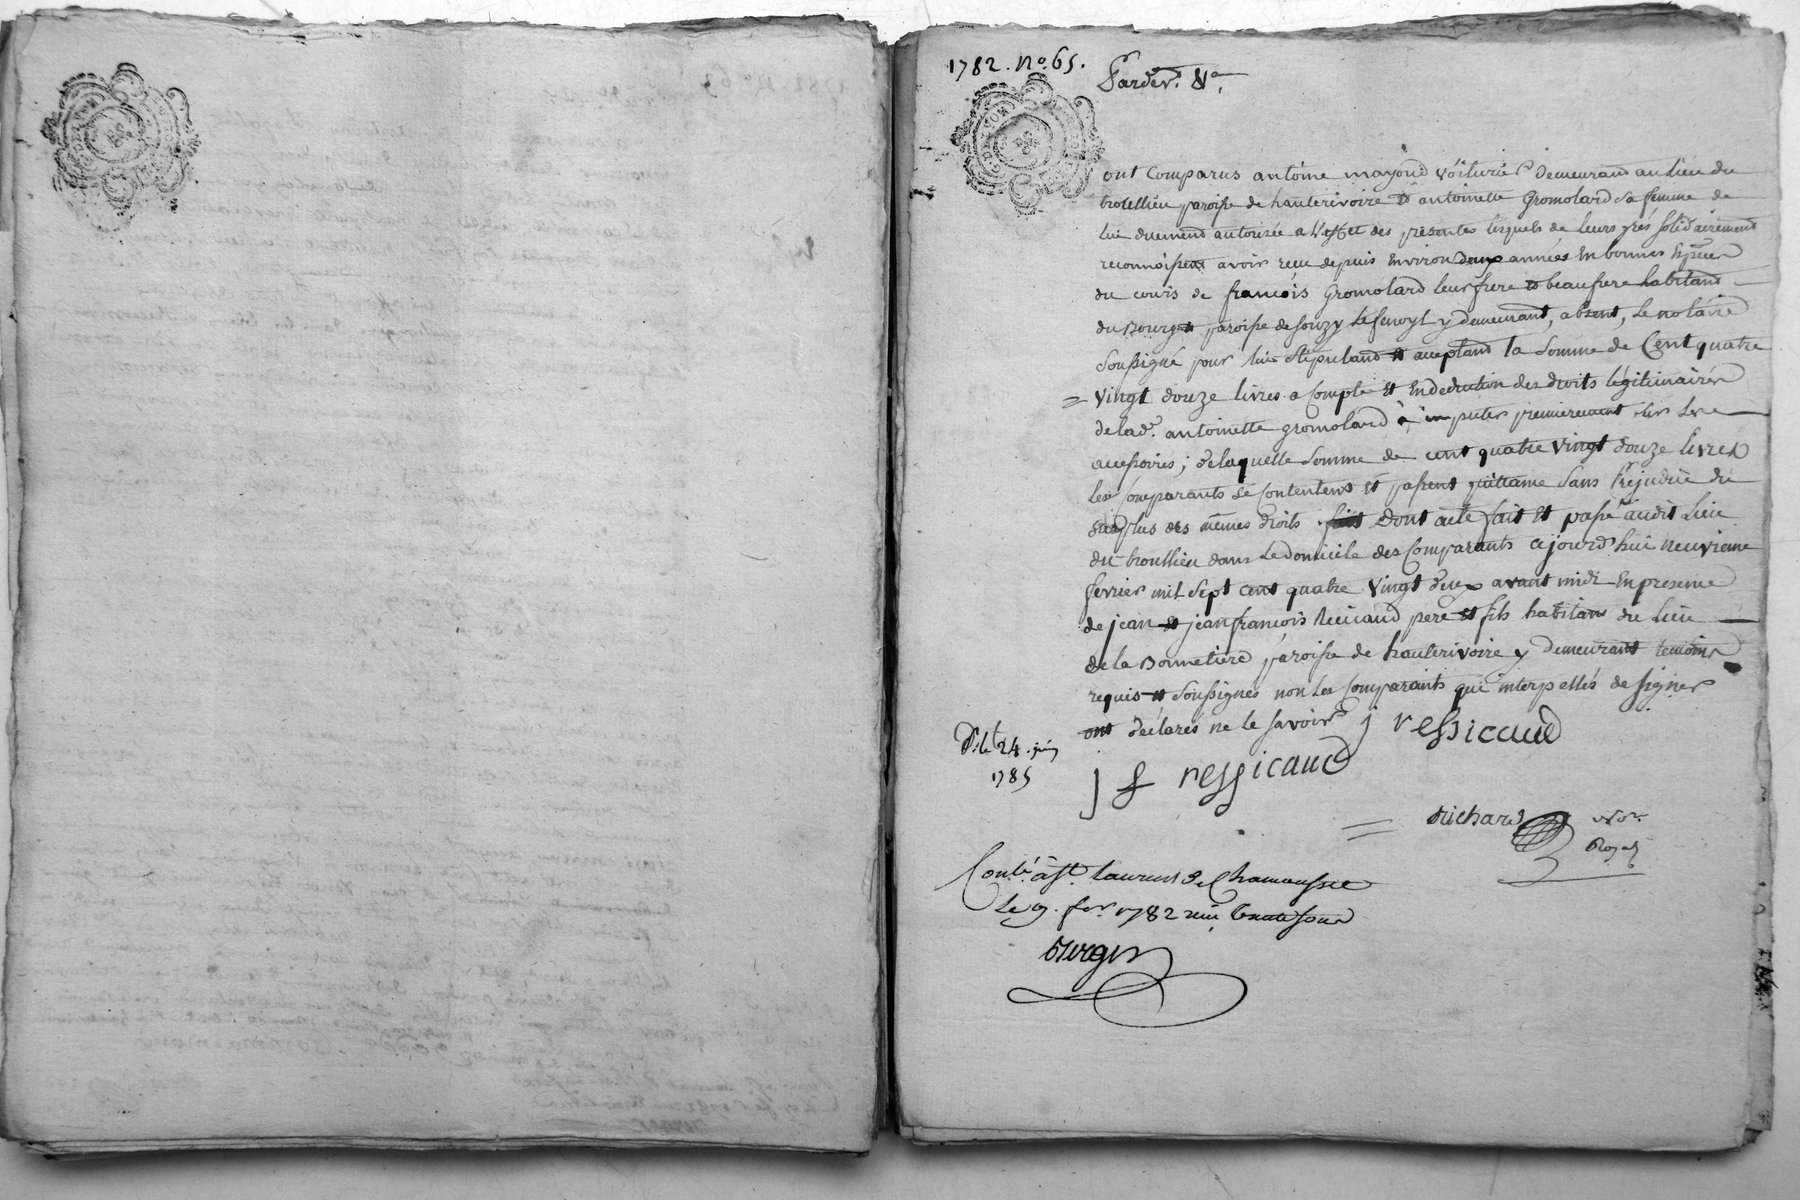 1782. No. 65.
Pardev.t &a.
ont Comparus antoine mayoud Voiturier demeurant au lieu du
trouillieu paroisse de hauterivoire et antoinette Gromolard sa femme de
lui duement autorisée a l'effet des presentes lesquels de leurs grés solidairement
reconnoissent avoir recu depuis Environ deux années En bonnes Espèces
du cours de françois Gromolard leur frere et beaufrere habitant
du Bourg et paroisse de Souzy y demeurant, absent, Le notaire
Soussigné pour lui Stipulant et acceptant la Somme de Cent quatre
Vingt douze livres a Compte Et En deduction des droits légitimaires
de lad.e antoinette gromolard à imputer premierement sur les
accessoires; de laquelle Somme de cent quatre Vingt douze livres
les Comparants se Contentent Et passent quittance Sans Préjudice du
surplus des mêmes droits. Dont acte fait Et passé audit Lieu
du trouillieu dans Le domicile des Comparants cejourd'hui neuvieme
fevrier mil Sept cent quatre Vingt deux avant midi En presence
de jean et jean françois Ressicaud pere et fils habitans du Lieu
de la Bonnetiere, paroisse de hauterivoire y demeurant temoins
requis et Soussignés non Les Comparants qui interpellés de signer
ont déclarés ne le savoir j ressicaud
D. le 24. juin
1785
j f ressicaud
Richard Nore.
Royal
Conlé. à St. Laurent de Chamousset
Le 9. fer. 1782 reçu quatorze sous
Burgein